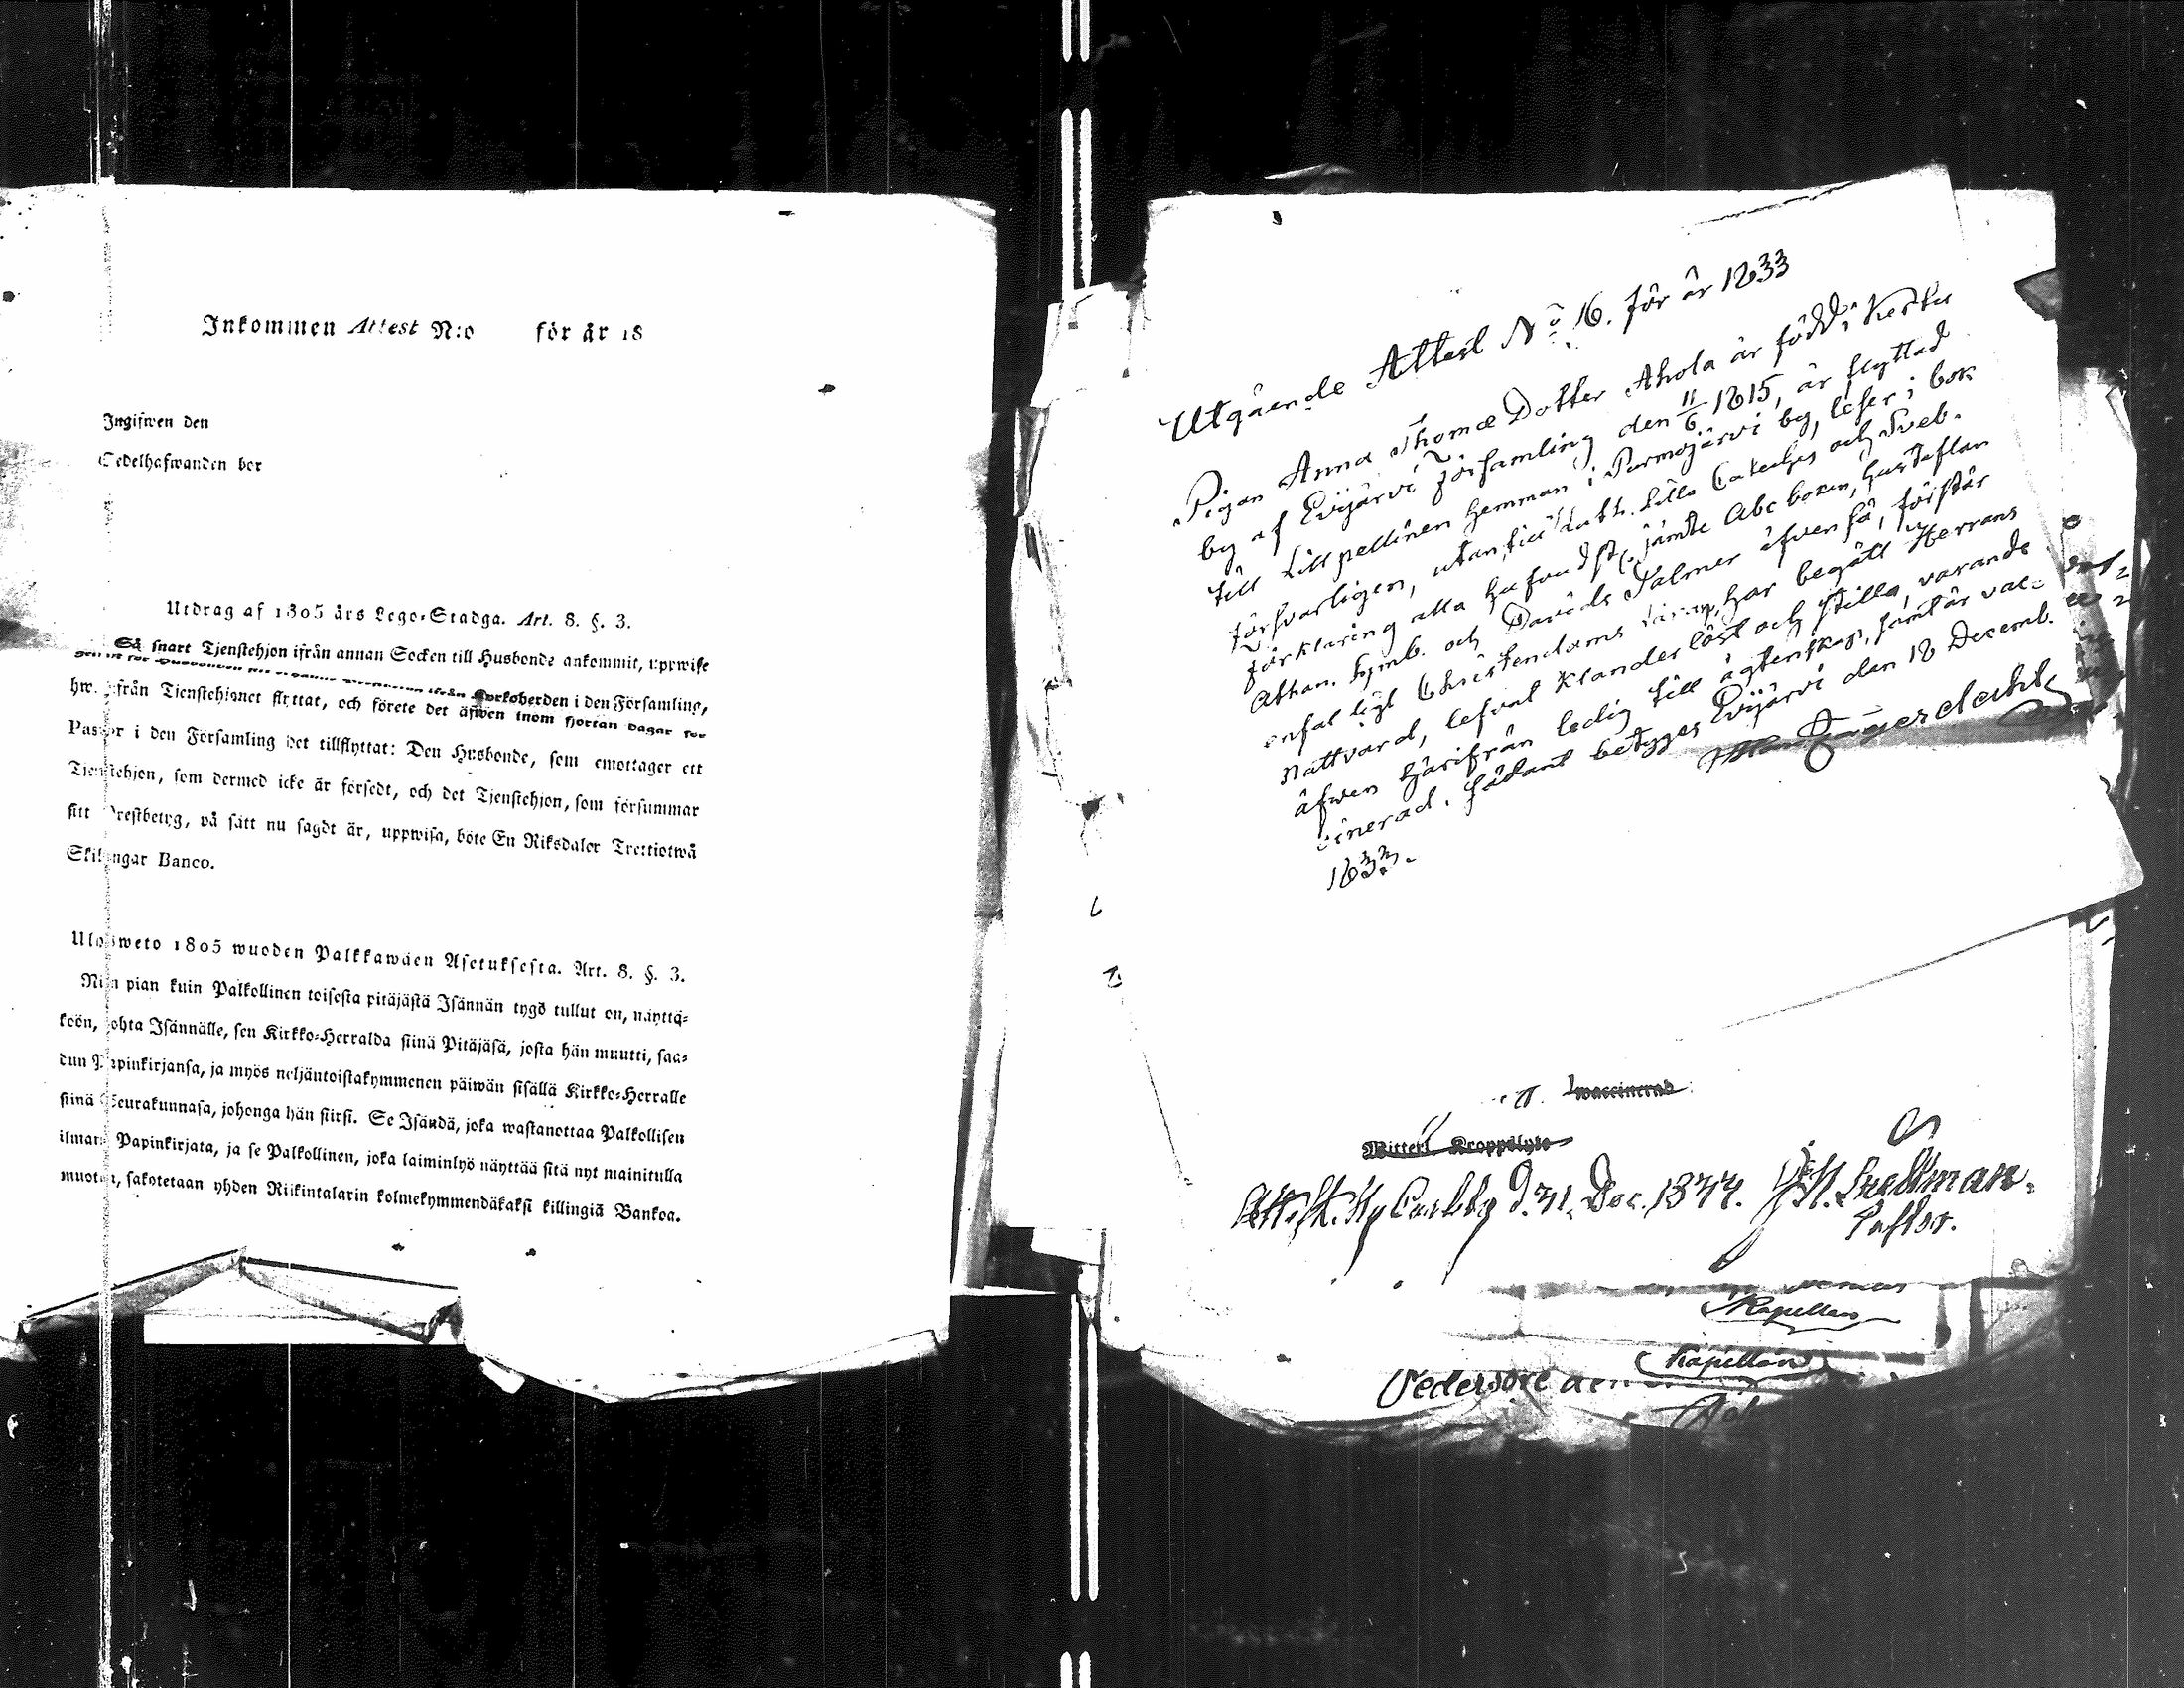 Inkommen Attest N:o för år 18
Ingifwen den
Oedelhafwanden bor
Utdrag af 1805 års Lego-Stadga. Art. 8. §. 3.
Så snart Tjenstehjon ifrån annan Socken till Husbonde ankommit, uppwise
Kyrkoherden i den Församling,
ifrån Tjenstehjonet flyttat, och förete det äfwen inom fjortan dagar för
Pastor i den Församling det tillflyttat: Den Husbonde, som emottager ett
Tjenstehjon, som dermed icke är försedt, och det Tjenstehjon, som försummar
sitt Prestbetyg, på sätt nu sagdt är, uppwisa, böte En Riksdaler Trettiotwå
Skillingar Banco.
Ulosweto 1805 wuoden Palkkawäen Asetuksesta. Art. 8. §. 3.
Niin pian kuin Palkollinen toisesta pitäjästä Isännän tygö tullut on, näyttä-
köön, kohta Isännälle, sen Kirkko-Herralda siinä Pitäjäsä, josta hän muutti, saa-
dun Papinkirjansa, ja myös neljäntoistakymmenen päiwän sisällä Kirkko-Herralle
siinä Seurakunnasa, johonga hän siirsi. Se Isändä, joka wastanottaa Palkollisen
ilman Papinkirjata, ja se Palkollinen, joka laiminlyö näyttää sitä nyt mainitulla
muoton, sakotetaan yhden Riikintalarin kolmekymmendäkaksi killingiä Bankoa.
Utgående Attest No 16. för år 1833
Pigan Anna Thomæ Dotter Ahola är född i Kerttu
by af Evijärvi församling den 11/6 1815, är flyttad
till Lillpellinen hemman i Purmojärvi by, läser i bok
försvarligen, utantill Luth. lilla Cateches och Sveb.
förklaring alla hufvudst. jämte Abc boken, hustaflan
Athan. Symb. och Davids Psalmer äfvenså, förstår
enfaldigt Christendoms har begått Herrans
Nattvard, lefvat klanderlöst och stilla, varande
äfwen härifrån ledig till ägtenskap, samt är vac-
cinerad. Sådant betygges Evijärvi den 18 Decemb.
1833.
waccinerad
Witterl. Kroppslyte
Attest. Ny Carleby d. 31. Dec. 1844. J. H. Snellman.
Pastor.
Kapellan
Kapellan
Pedersöre den